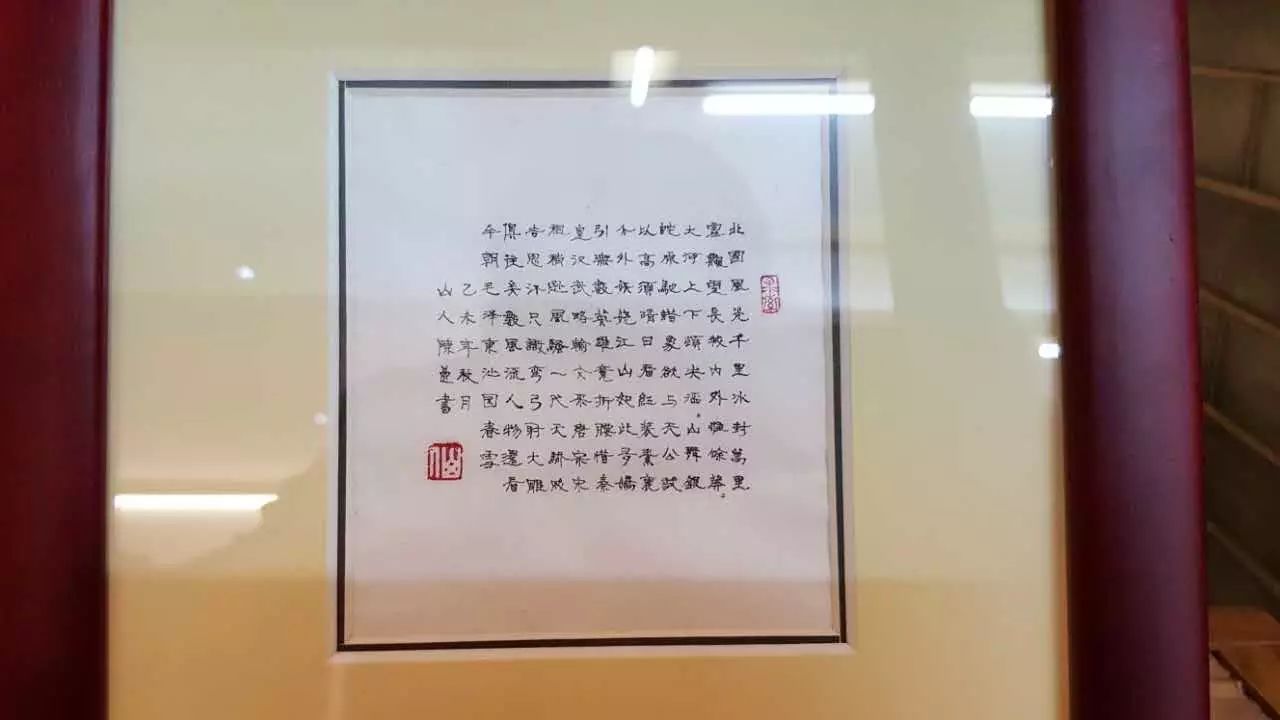 北國風光千里冰封萬里
雪飄望長城內外惟餘莽〻
大河上下頓失滔〻山舞銀
蛇原馳蜡象欲与天公試
比高須晴日看紅裝素裹
分外妖嬈江山如此多嬌
引無數英雄竟折腰惜秦
皇漢武略輸文采唐宗宋
祖稍遜風騷一代天驕成
吉思汗只識彎弓射大雕
俱往矣數風流人物還看
今朝毛泽東沁园春雪
乙未年秋月
山人陳書